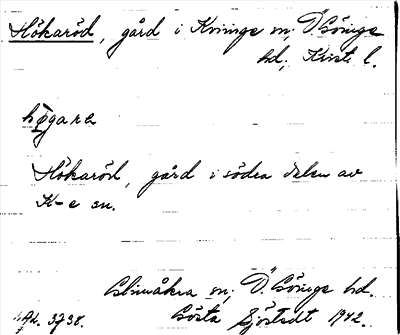 Hökaröd, gård i Kviinge sn; Ö. Göinge
hd; Krist. l.
högare
Hökaröd, gård i södra delen av
K-e sn.
Glimåkra sn; Ö. Göinge hd.
3738. Gösta Sjöstedt 1942.